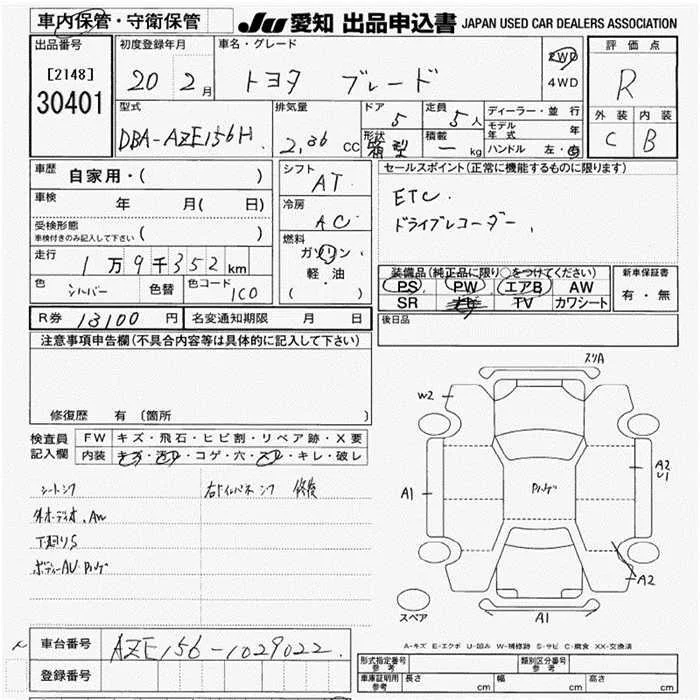 車内保管・守衛保管
JU 愛知 出品申込書 JAPAN USED CAR DEALERS ASSOCIATION
出品番号
[2148]
30401
初度登録年月
20年 2月
車名・グレード
トヨタ ブレード
2WD
4WD
評価点
R
外装 内装
C B
型式
DBA-AZE156H
排気量
2.36 CC
ドア
5
定員
5人
形状
箱型
積載
ー kg
ディーラー・並行
モデル年式 年
ハンドル 左・右
車歴
自家用・( )
車検
年 月( 日)
受検形態
車検付きのみ記入して下さい ( )
走行
1万9千352km
色 シルバー 色替 色コード 1C0
シフト
AT
冷房
AC
燃料
ガソリン
軽・油
( )
セールスポイント(正常に機能するものに限ります)
ETC.
ドライブレコーダー.
装備品(純正品に限り○をつけてください)
PS PW エアB AW
SR TV カワシート
新車保証書
有・無
後日品
R券 13100円 名変通知期限 月 日
注意事項申告欄(不具合内容等は具体的に記入して下さい)
修復歴 有(箇所 )
検査員記入欄
FW キズ・飛石・ヒビ割・リペア跡・X要
内装 キズ・汚れ・コゲ・穴・スレ・キレ・破レ
外オーディオ.AW
下廻りS
スリA
W2
A1
A2
A2
A1
スペア
A-キズ E-エクボ U-凹み W-補修跡 S-サビ C-腐食 XX-交換済
車台番号
AZE156-1029022
登録番号
形式指定番号 参考
類別区分番号 参考
車庫証明用 参考 長さ cm 幅 cm 高さ cm